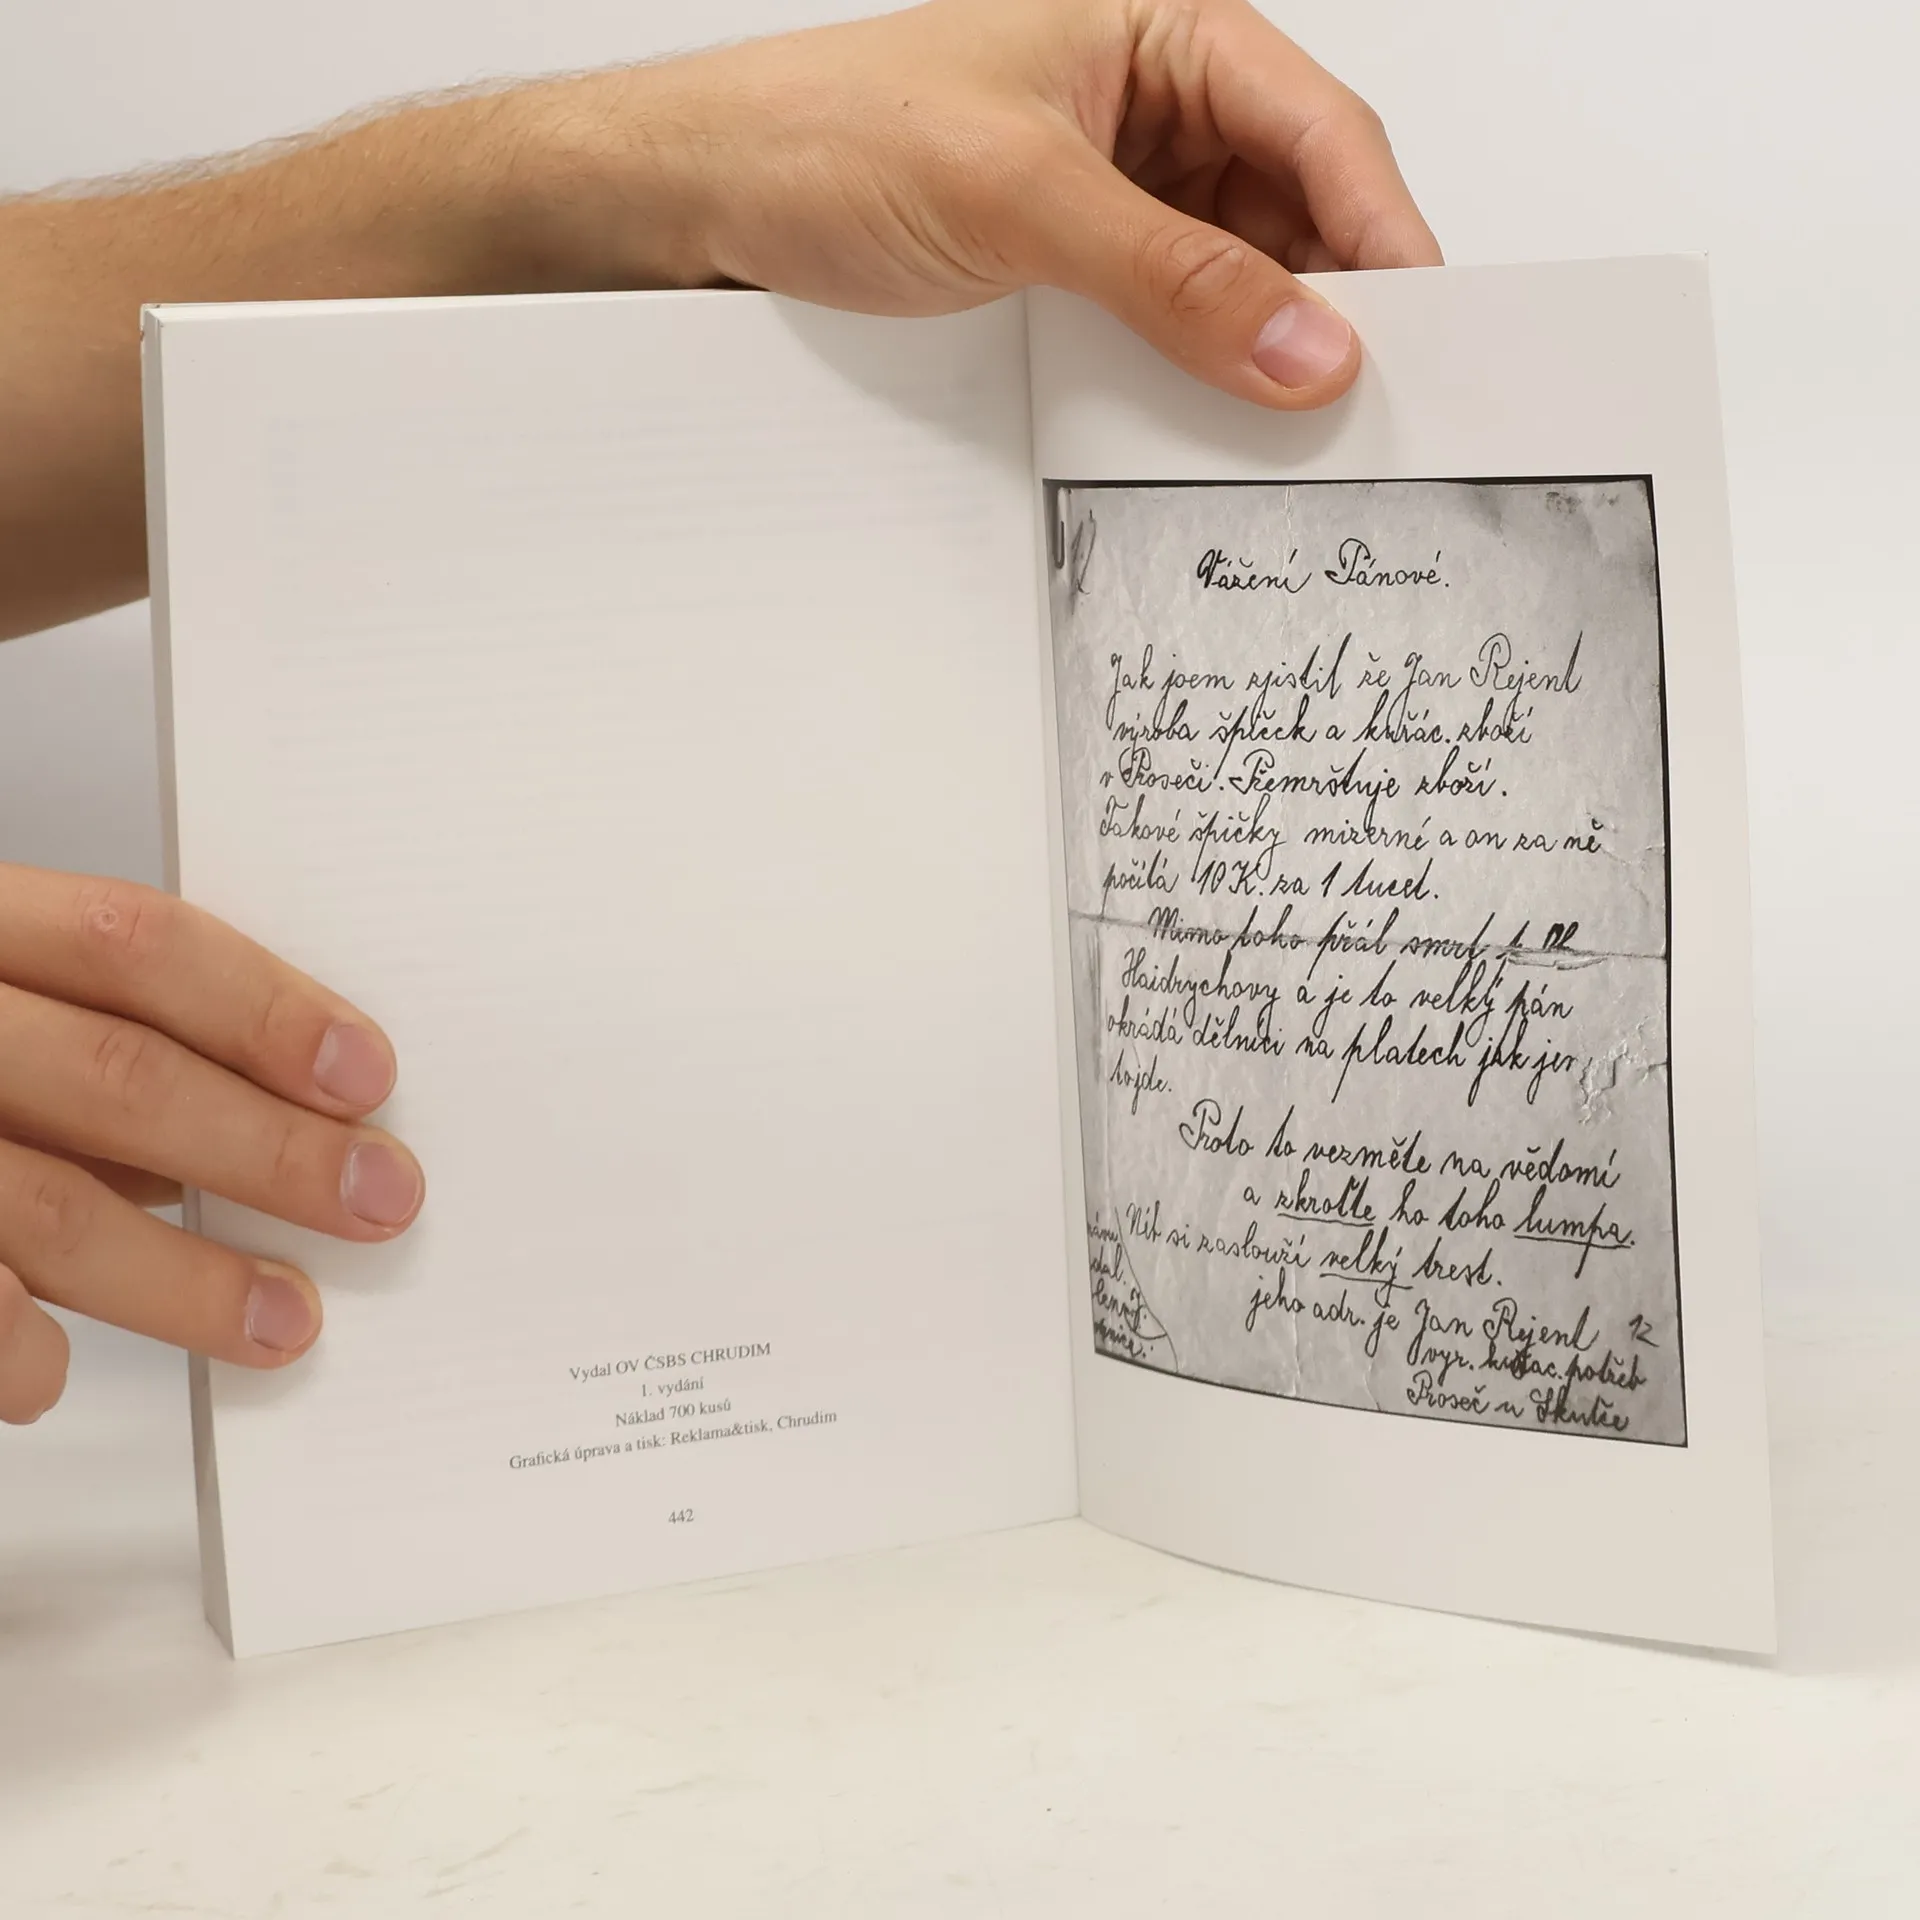 Vydal OV ČSBS CHRUDIM
1. vydání
Náklad 700 kusů
Grafická úprava a tisk: Reklama&tisk, Chrudim
442
12
Vážení Pánové.
Jak jsem zjistil že Jan Rejent
výroba špiček a kuřác. zboží
v Proseči. Přemrštuje zboží.
Takové špičky mizerné a on za ně
počítá 10 K. za 1 tucet.
Mimo toho přál smrt
Haidrychovy a je to velký pán
okrádá dělníci na platech jak jen
tojde.
Proto to vezměte na vědomí
a zkroťte ho toho lumpa.
Nét si zaslouží velký trest.
jeho adr. je Jan Rejent 12
vyr. kuřac. potřeb
Proseč u Skutče
dal.